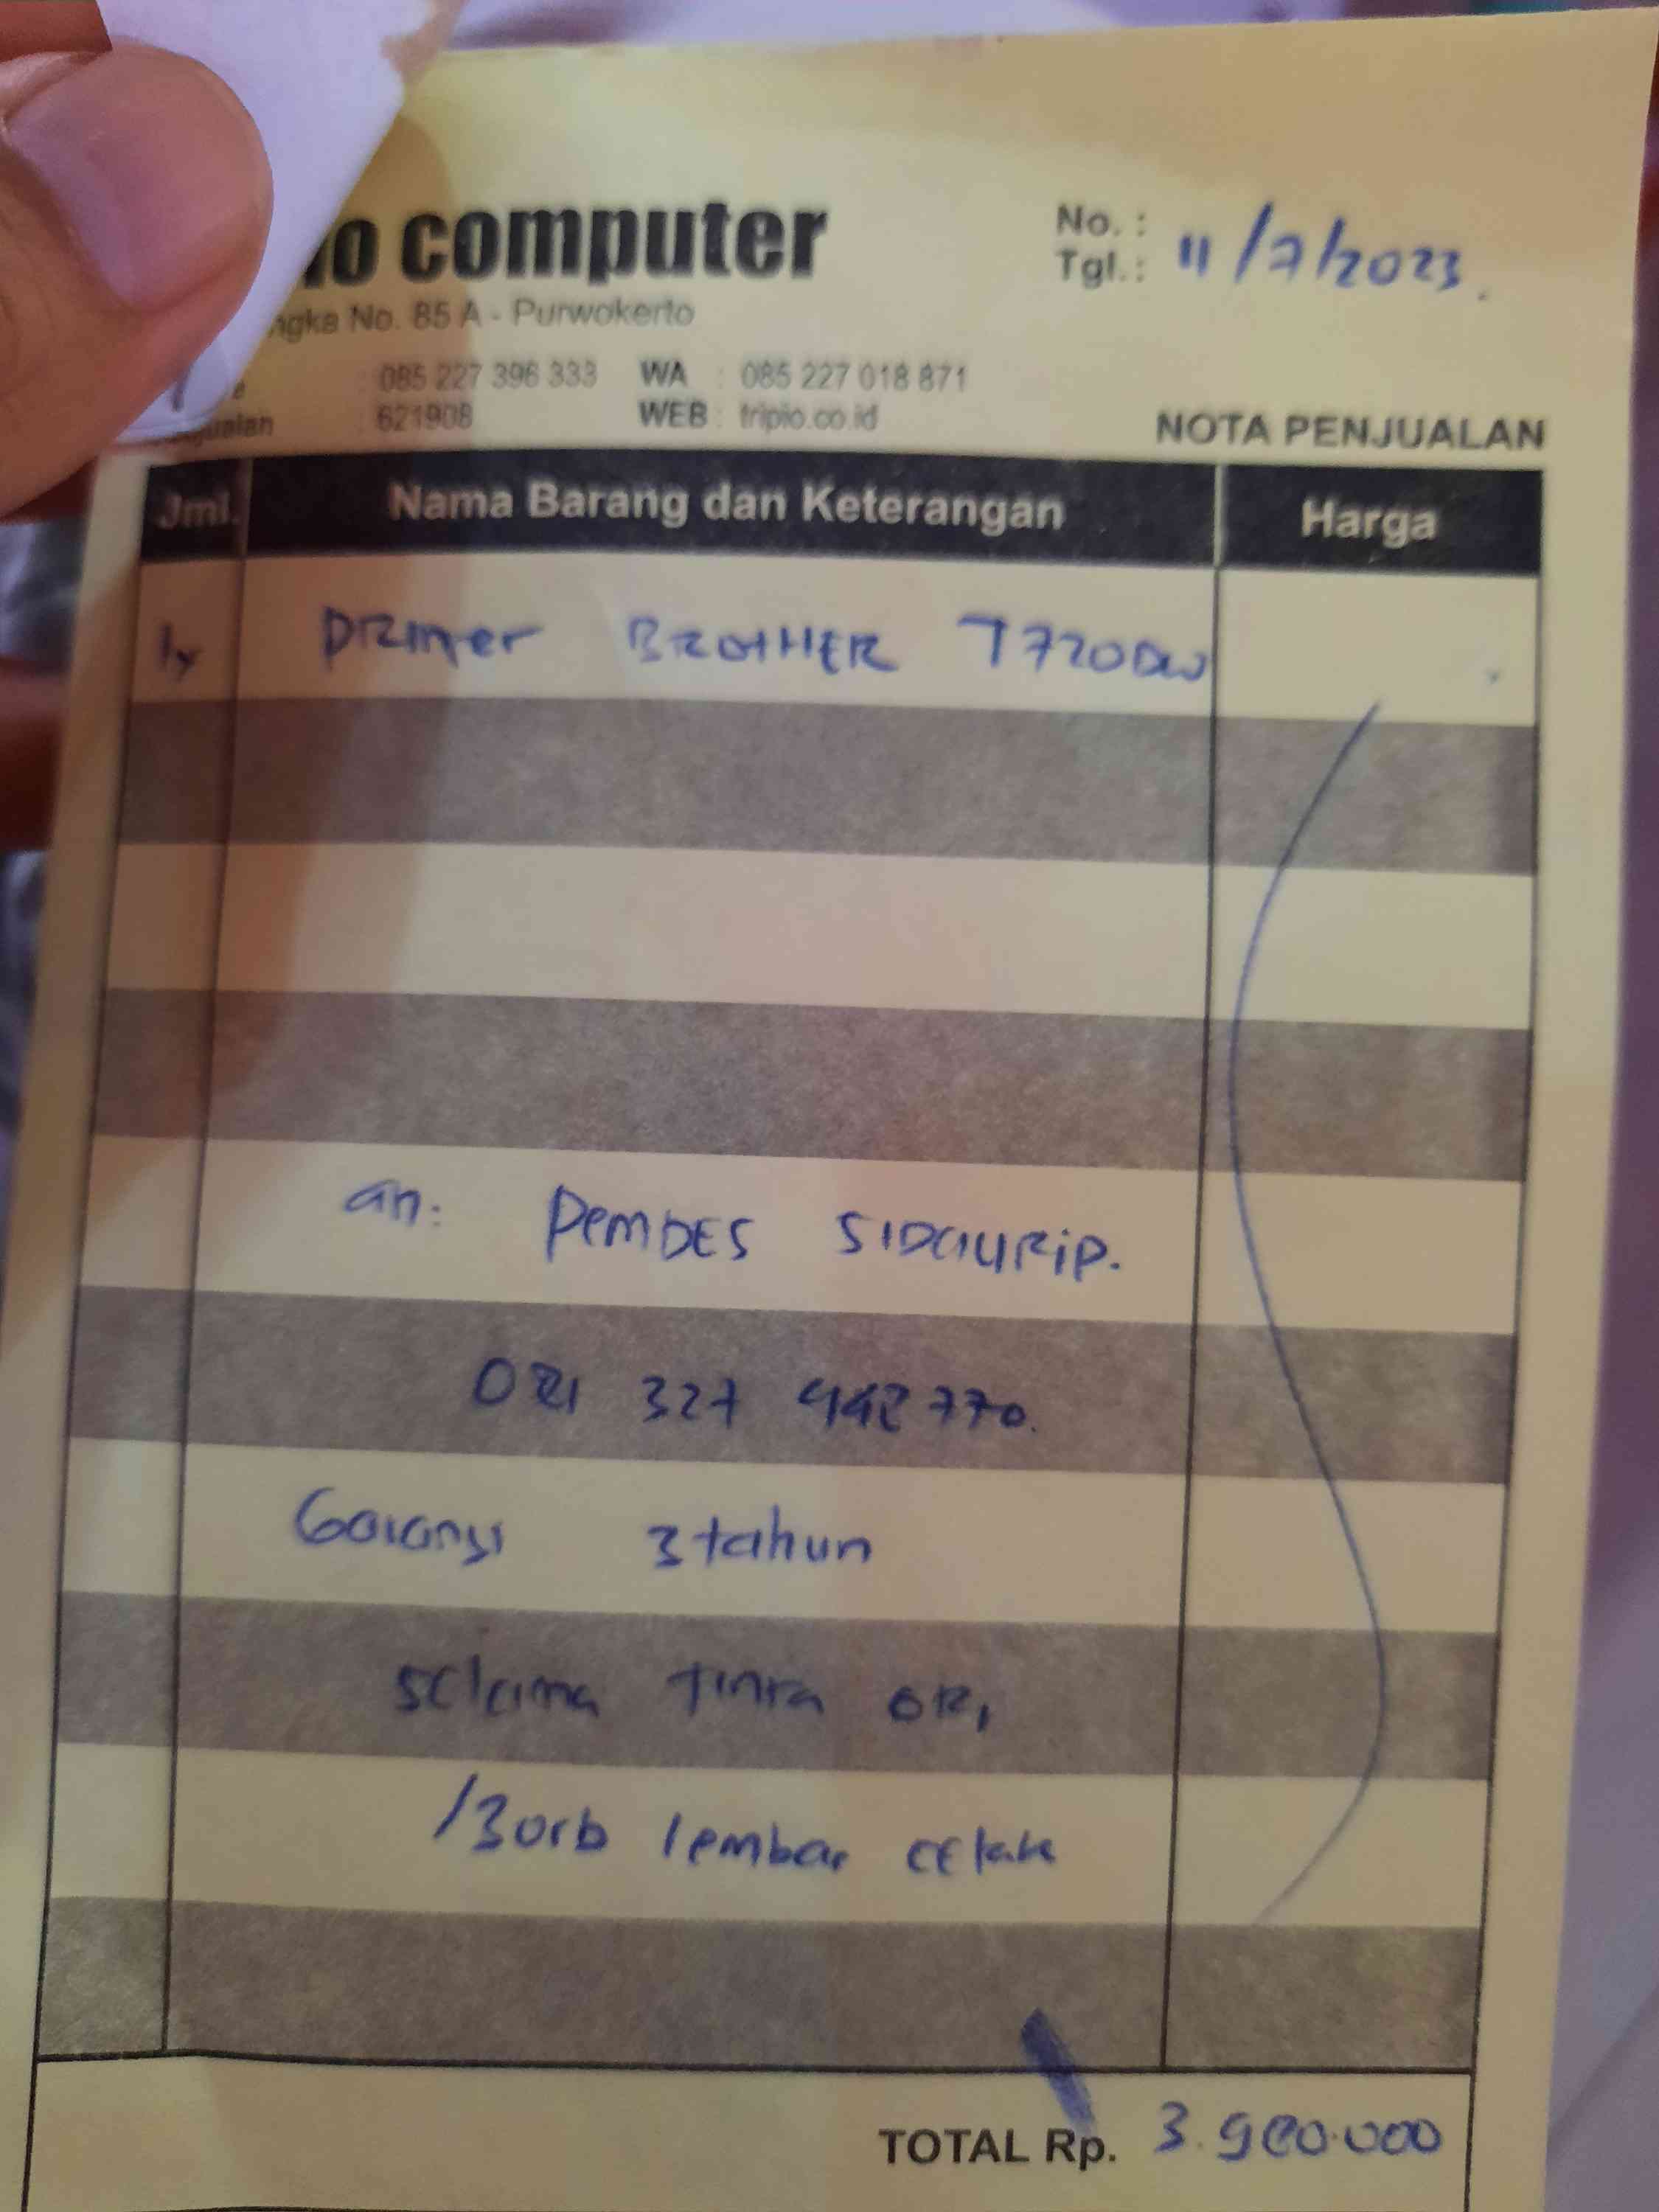 computer
No. :
Tgl. : 11/7/2023.
No. 85 A - Purwokerto
: 085 227 396 333 WA : 085 227 018 871
: 621908 WEB : tripio.co.id
NOTA PENJUALAN
Jml. Nama Barang dan Keterangan Harga
1x Printer BROTHER T720DW
an: PemDES SIDAURIP.
081 327 442 770.
Garansi 3 tahun
selama tinta ORI
/30rb lembar cetak
TOTAL Rp. 3.900.000